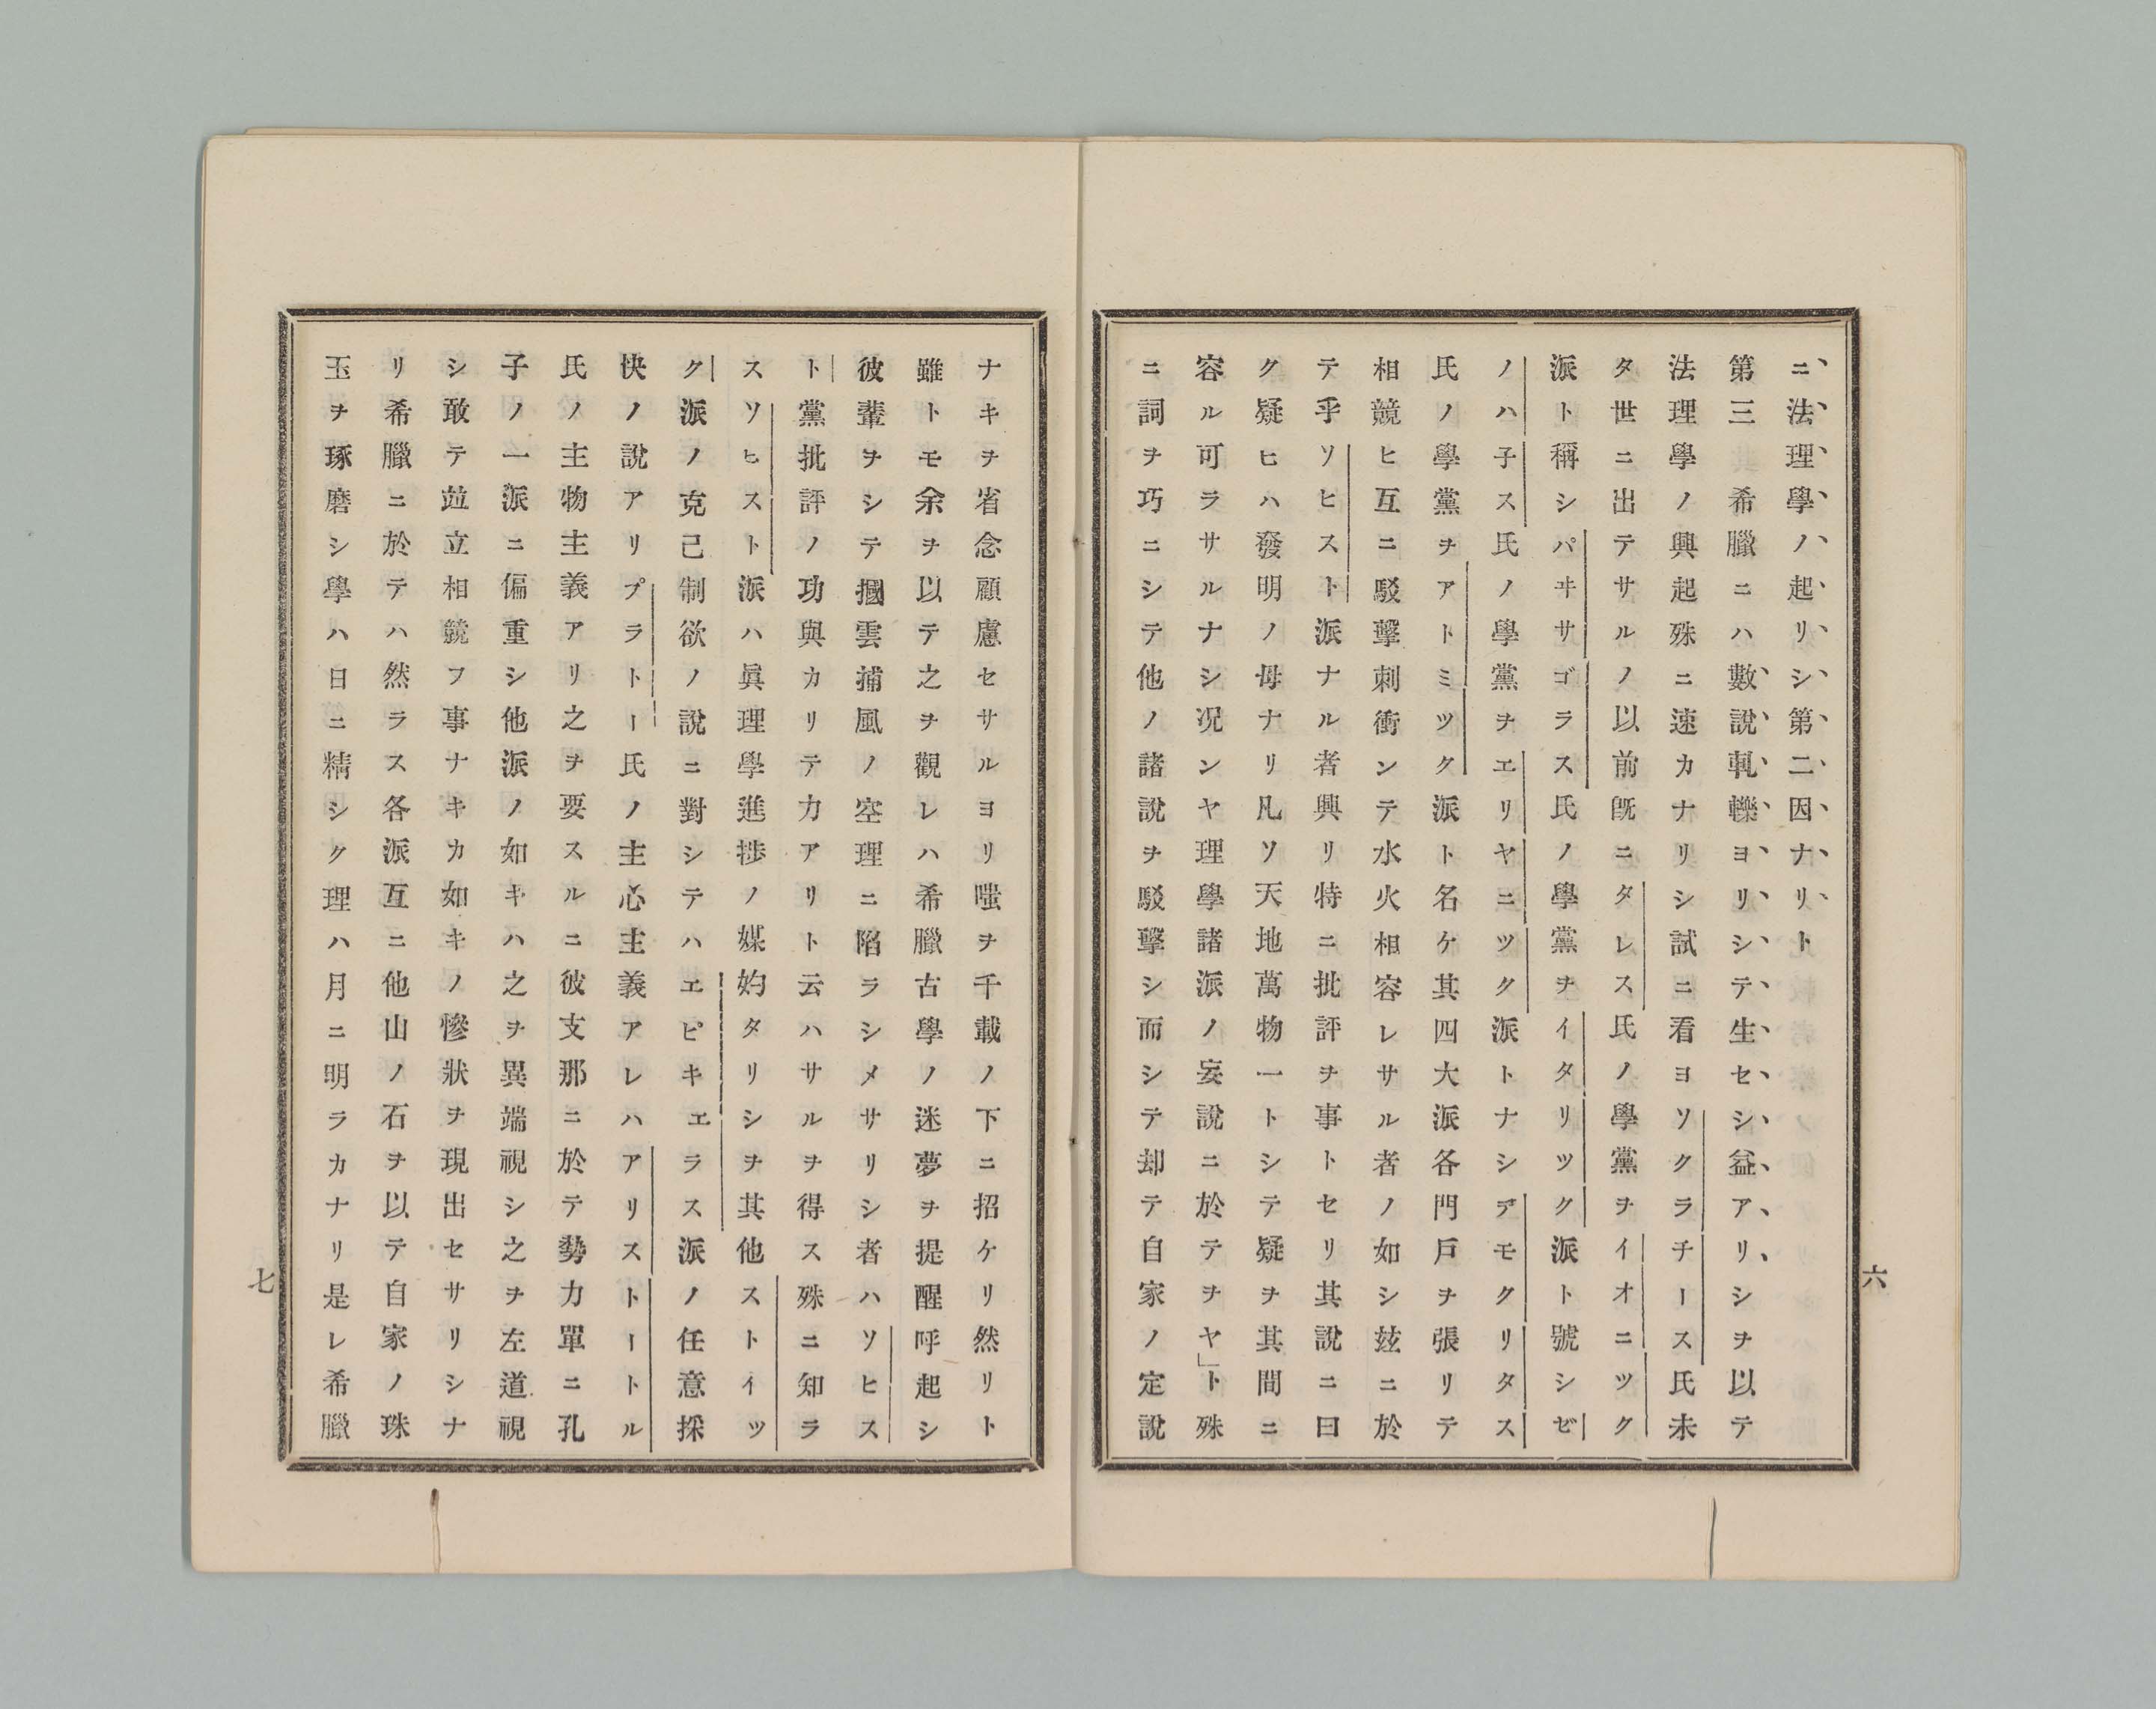 ニ法理學ノ起リシ第二因ナリト
第三希臘ニハ數說軋轢ヨリシテ生セシ益アリシヲ以テ
法理學ノ興起殊ニ速カナリシ試ニ看ヨソクラチース氏未
タ世ニ出テサルノ以前既ニタレス氏ノ學黨ヲイオニツク
派ト稱シパヰサゴラス氏ノ學黨ヲイタリツク派ト號シゼ
ノハ子ス氏ノ學黨ヲエリヤニツク派トナシデモクリタス
氏ノ學黨ヲアトミツク派ト名ケ其四大派各門戶ヲ張リテ
相競ヒ互ニ駁擊刺衝シテ水火相容レサル者ノ如シ玆ニ於
テ乎ソヒスト派ナル者興リ特ニ批評ヲ事トセリ其說ニ曰
ク疑ヒハ發明ノ母ナリ凡ソ天地萬物一トシテ疑ヲ其間ニ
容ル可ラサルナシ况ンヤ理學諸派ノ妄說ニ於テヲヤ」ト殊
ニ詞ヲ巧ニシテ他ノ諸說ヲ駁擊シ而シテ却テ自家ノ定說
六
ナキヲ省念顧慮セサルヨリ嗤ヲ千載ノ下ニ招ケリ然リト
雖トモ余ヲ以テ之ヲ觀レハ希臘古學ノ迷夢ヲ提醒呼起シ
彼輩ヲシテ摑雲捕風ノ空理ニ陷ラシメサリシ者ハソヒス
ト黨批評ノ功與カリテ力アリト云ハサルヲ得ス殊ニ知ラ
スソヒスト派ハ眞理學進捗ノ媒妁タリシヲ其他ストイツ
ク派ノ克己制欲ノ說ニ對シテハエピキエラス派ノ任意採
快ノ說アリプラトー氏ノ主心主義アレハアリストートル
氏ノ主物主義アリ之ヲ要スルニ彼支那ニ於テ勢力單ニ孔
子ノ一派ニ偏重シ他派ノ如キハ之ヲ異端視シ之ヲ左道視
シ敢テ竝立相競フ事ナキカ如キノ慘狀ヲ現出セサリシナ
リ希臘ニ於テハ然ラス各派互ニ他山ノ石ヲ以テ自家ノ珠
玉ヲ琢磨シ學ハ日ニ精シク理ハ月ニ明ラカナリ是レ希臘
七